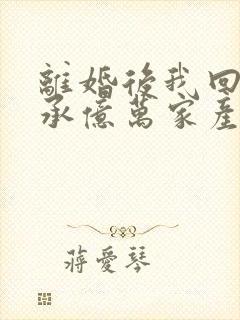 離婚後我回
承億萬家產
蔣愛琴